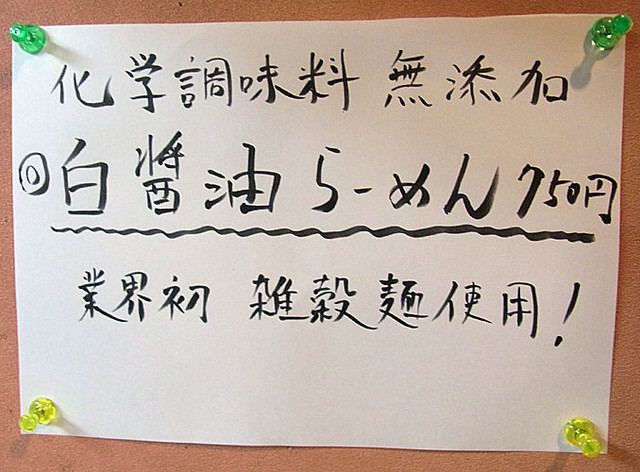 化学調味料 無添加
◎白醤油らーめん 750円
業界初 雑穀麺使用!